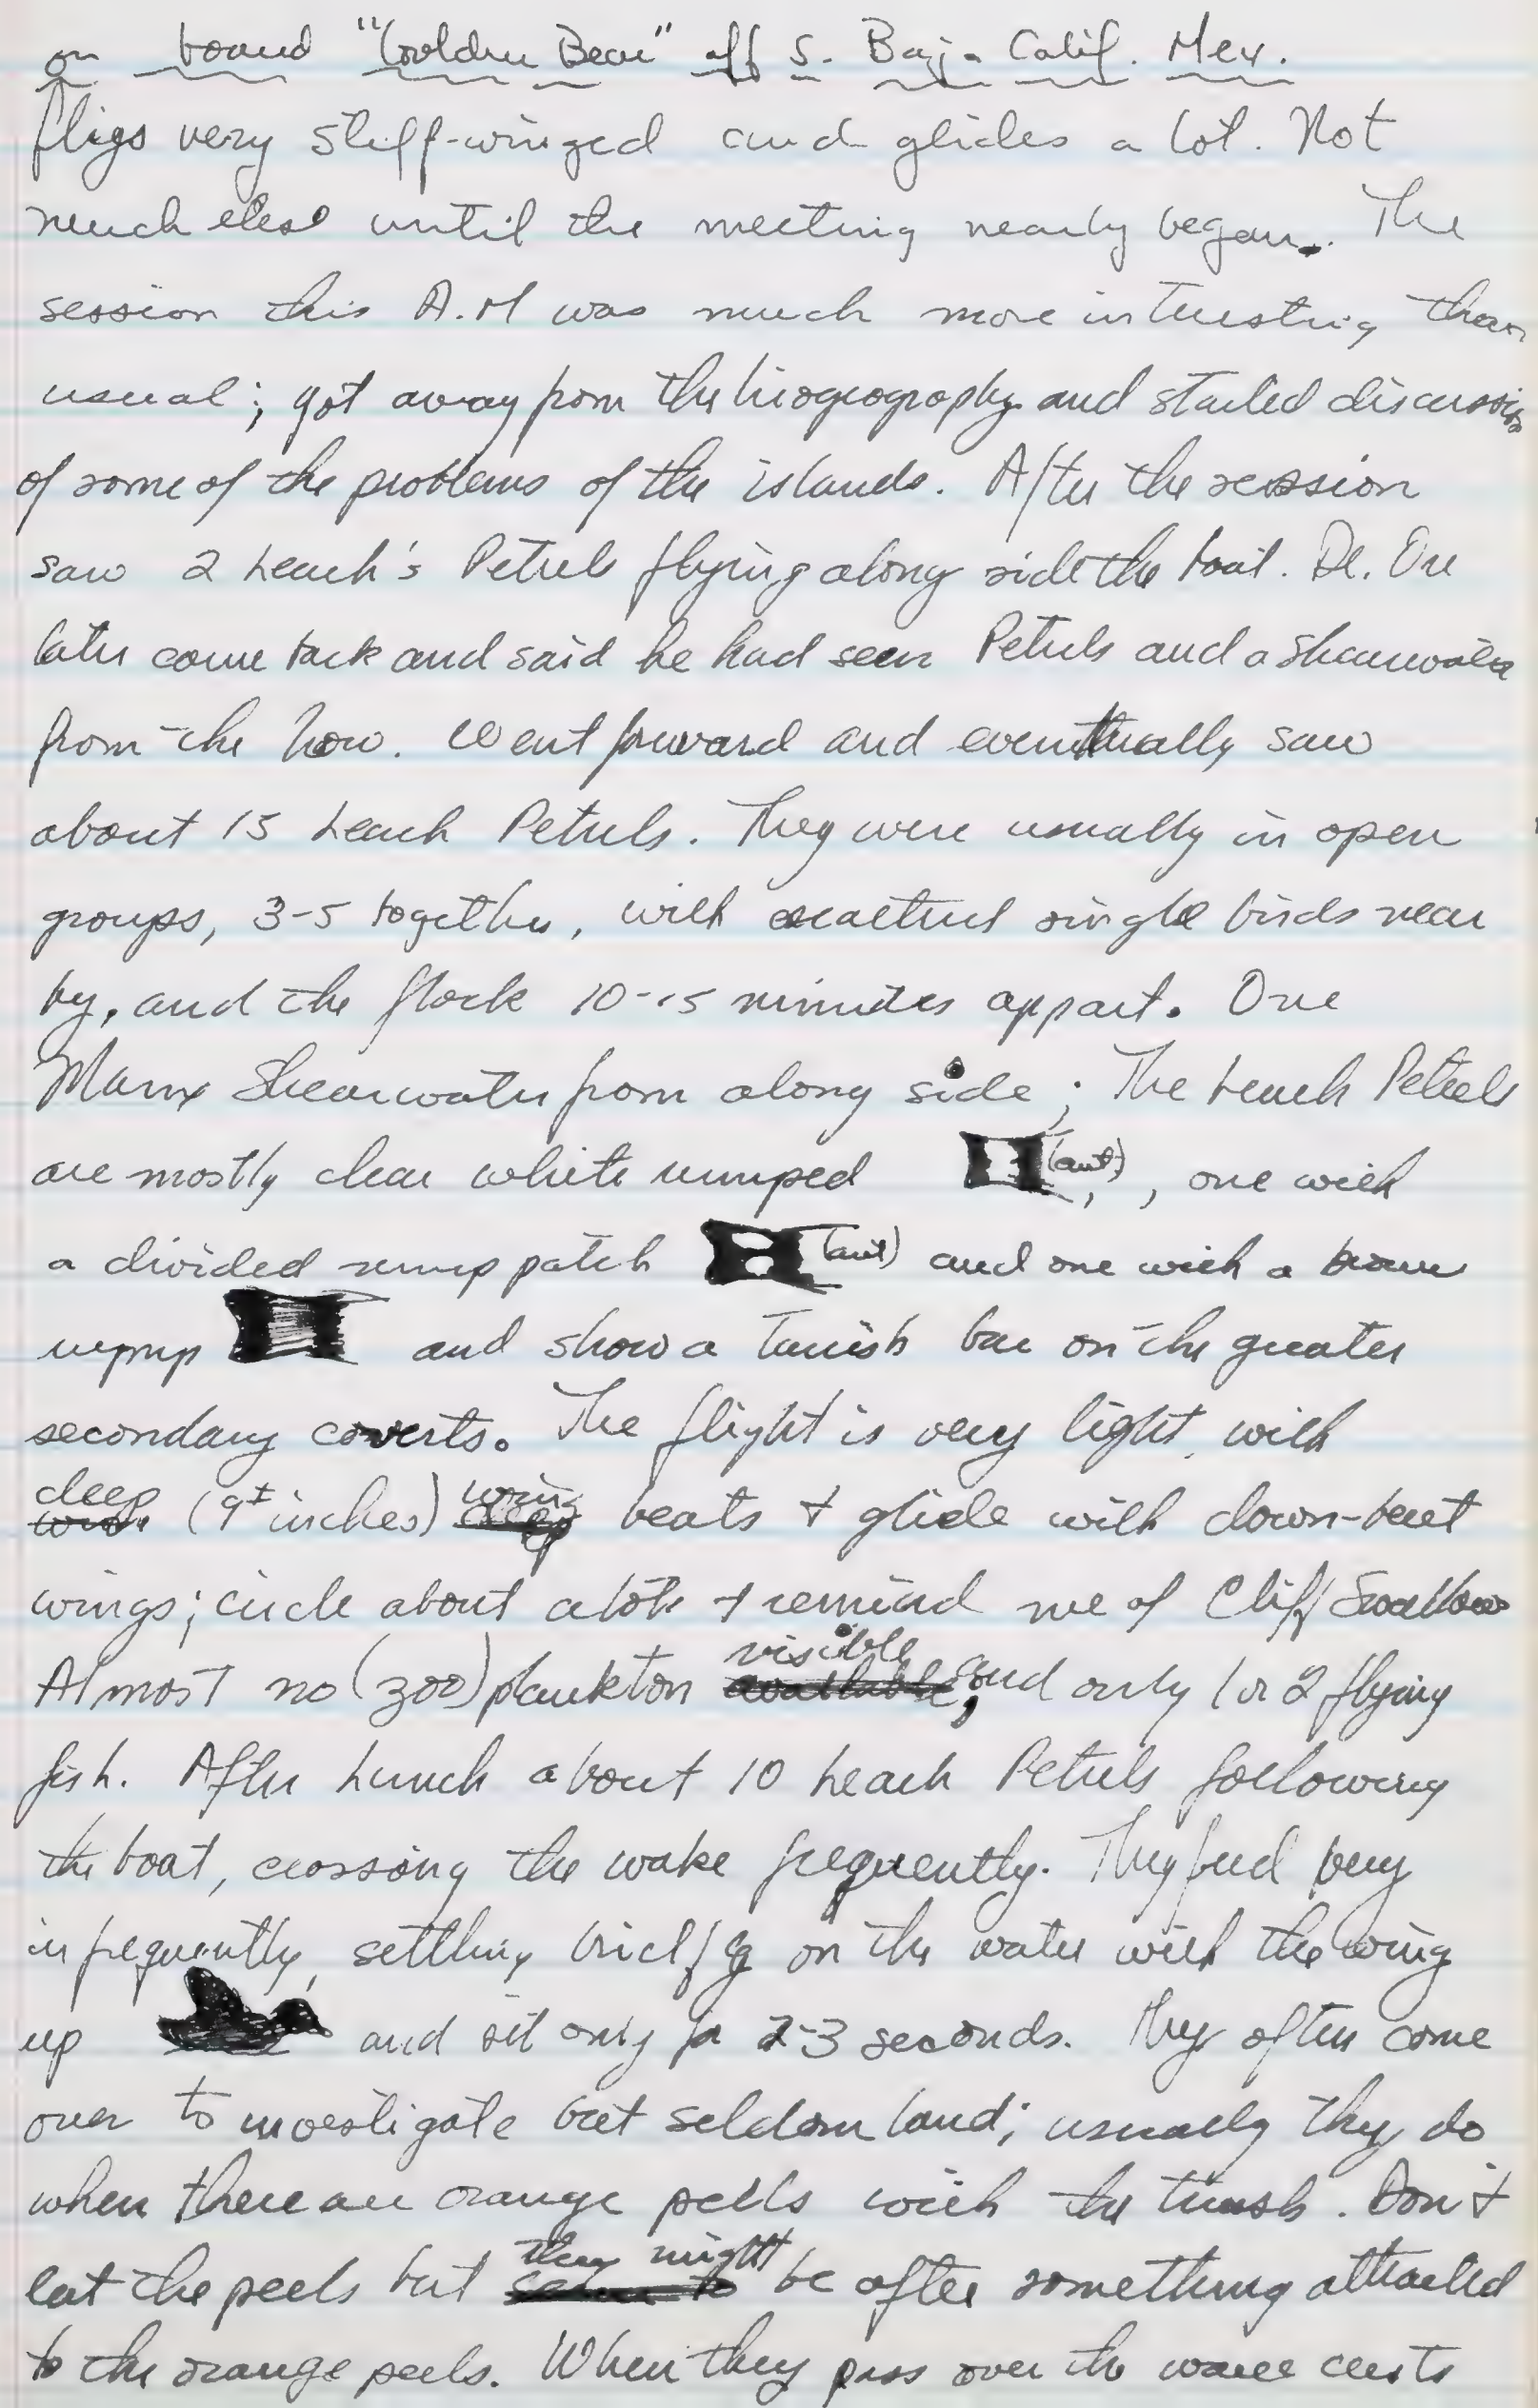 on board "Golden Bear" off S. Baja Calif. Mex.
fligs very stiff-winged and glides a lot. Not
much else until the meeting nearly began. The
session this A.M was much more interesting than
usual; got away from the biogeography and started discussion
of some of the problems of the islands. After the session
saw 2 Leach's Petrels flying along side the boat. Dr. Orr
later come back and said he had seen Petrels and a Shearwater
from the bow. Went forward and eventually saw
about 15 Leach Petrels. They were usually in open
groups, 3-5 together, with scattered single birds near
by, and the flock 10-15 minutes appart. One
Manx Shearwater from along side; The Leach Petrels
are mostly clear white rumped (ant), one with
a divided rump patch (ant) and one with a brown
rump and show a tanish bar on the greater
secondary coverts. The flight is very light, with
deep (9± inches) wing beats + glide with down-bent
wings; circle about a lot + remind me of Cliff Swallows
Almost no (zoo)plankton visible, and only 1 or 2 flying
fish. After lunch about 10 Leach Petrels following
the boat, crossing the wake frequently. They feed very
infrequently, settling briefly on the water with the wing
up and sit only for 2-3 seconds. They often come
over to investigate but seldom land; usually they do
when there are orange peels with the trash. Don't
eat the peels but they might be after something attached
to the orange peels. When they pass over the wave crests